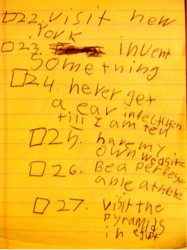 22. visit new
York
23. invent
something
24. never get
a ear infection
till I am ten
25. have my
own website
26. Be a
athlete
27. visit the
Pyramids
in